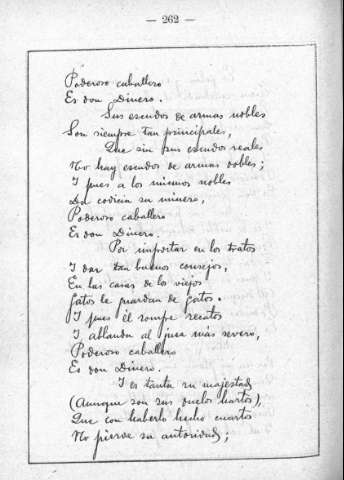 — 262 —
Poderoso caballero
Es don Dinero.
Sus escudos de armas nobles
Son siempre tan principales,
Que sin sus escudos reales
No hay escudos de armas dobles;
Y pues a los mismos nobles
Da codicia su minero,
Poderoso caballero
Es don Dinero.
Por importar en los tratos
Y dar tan buenos consejos,
En las casas de los viejos
Gatos le guardan de gatos.
Y pues él rompe recatos
Y ablanda al juez más severo,
Poderoso caballero
Es don Dinero.
Y es tanta su majestad
(Aunque son sus duelos hartos),
Que con haberlo hecho cuartos
No pierde su autoridad;